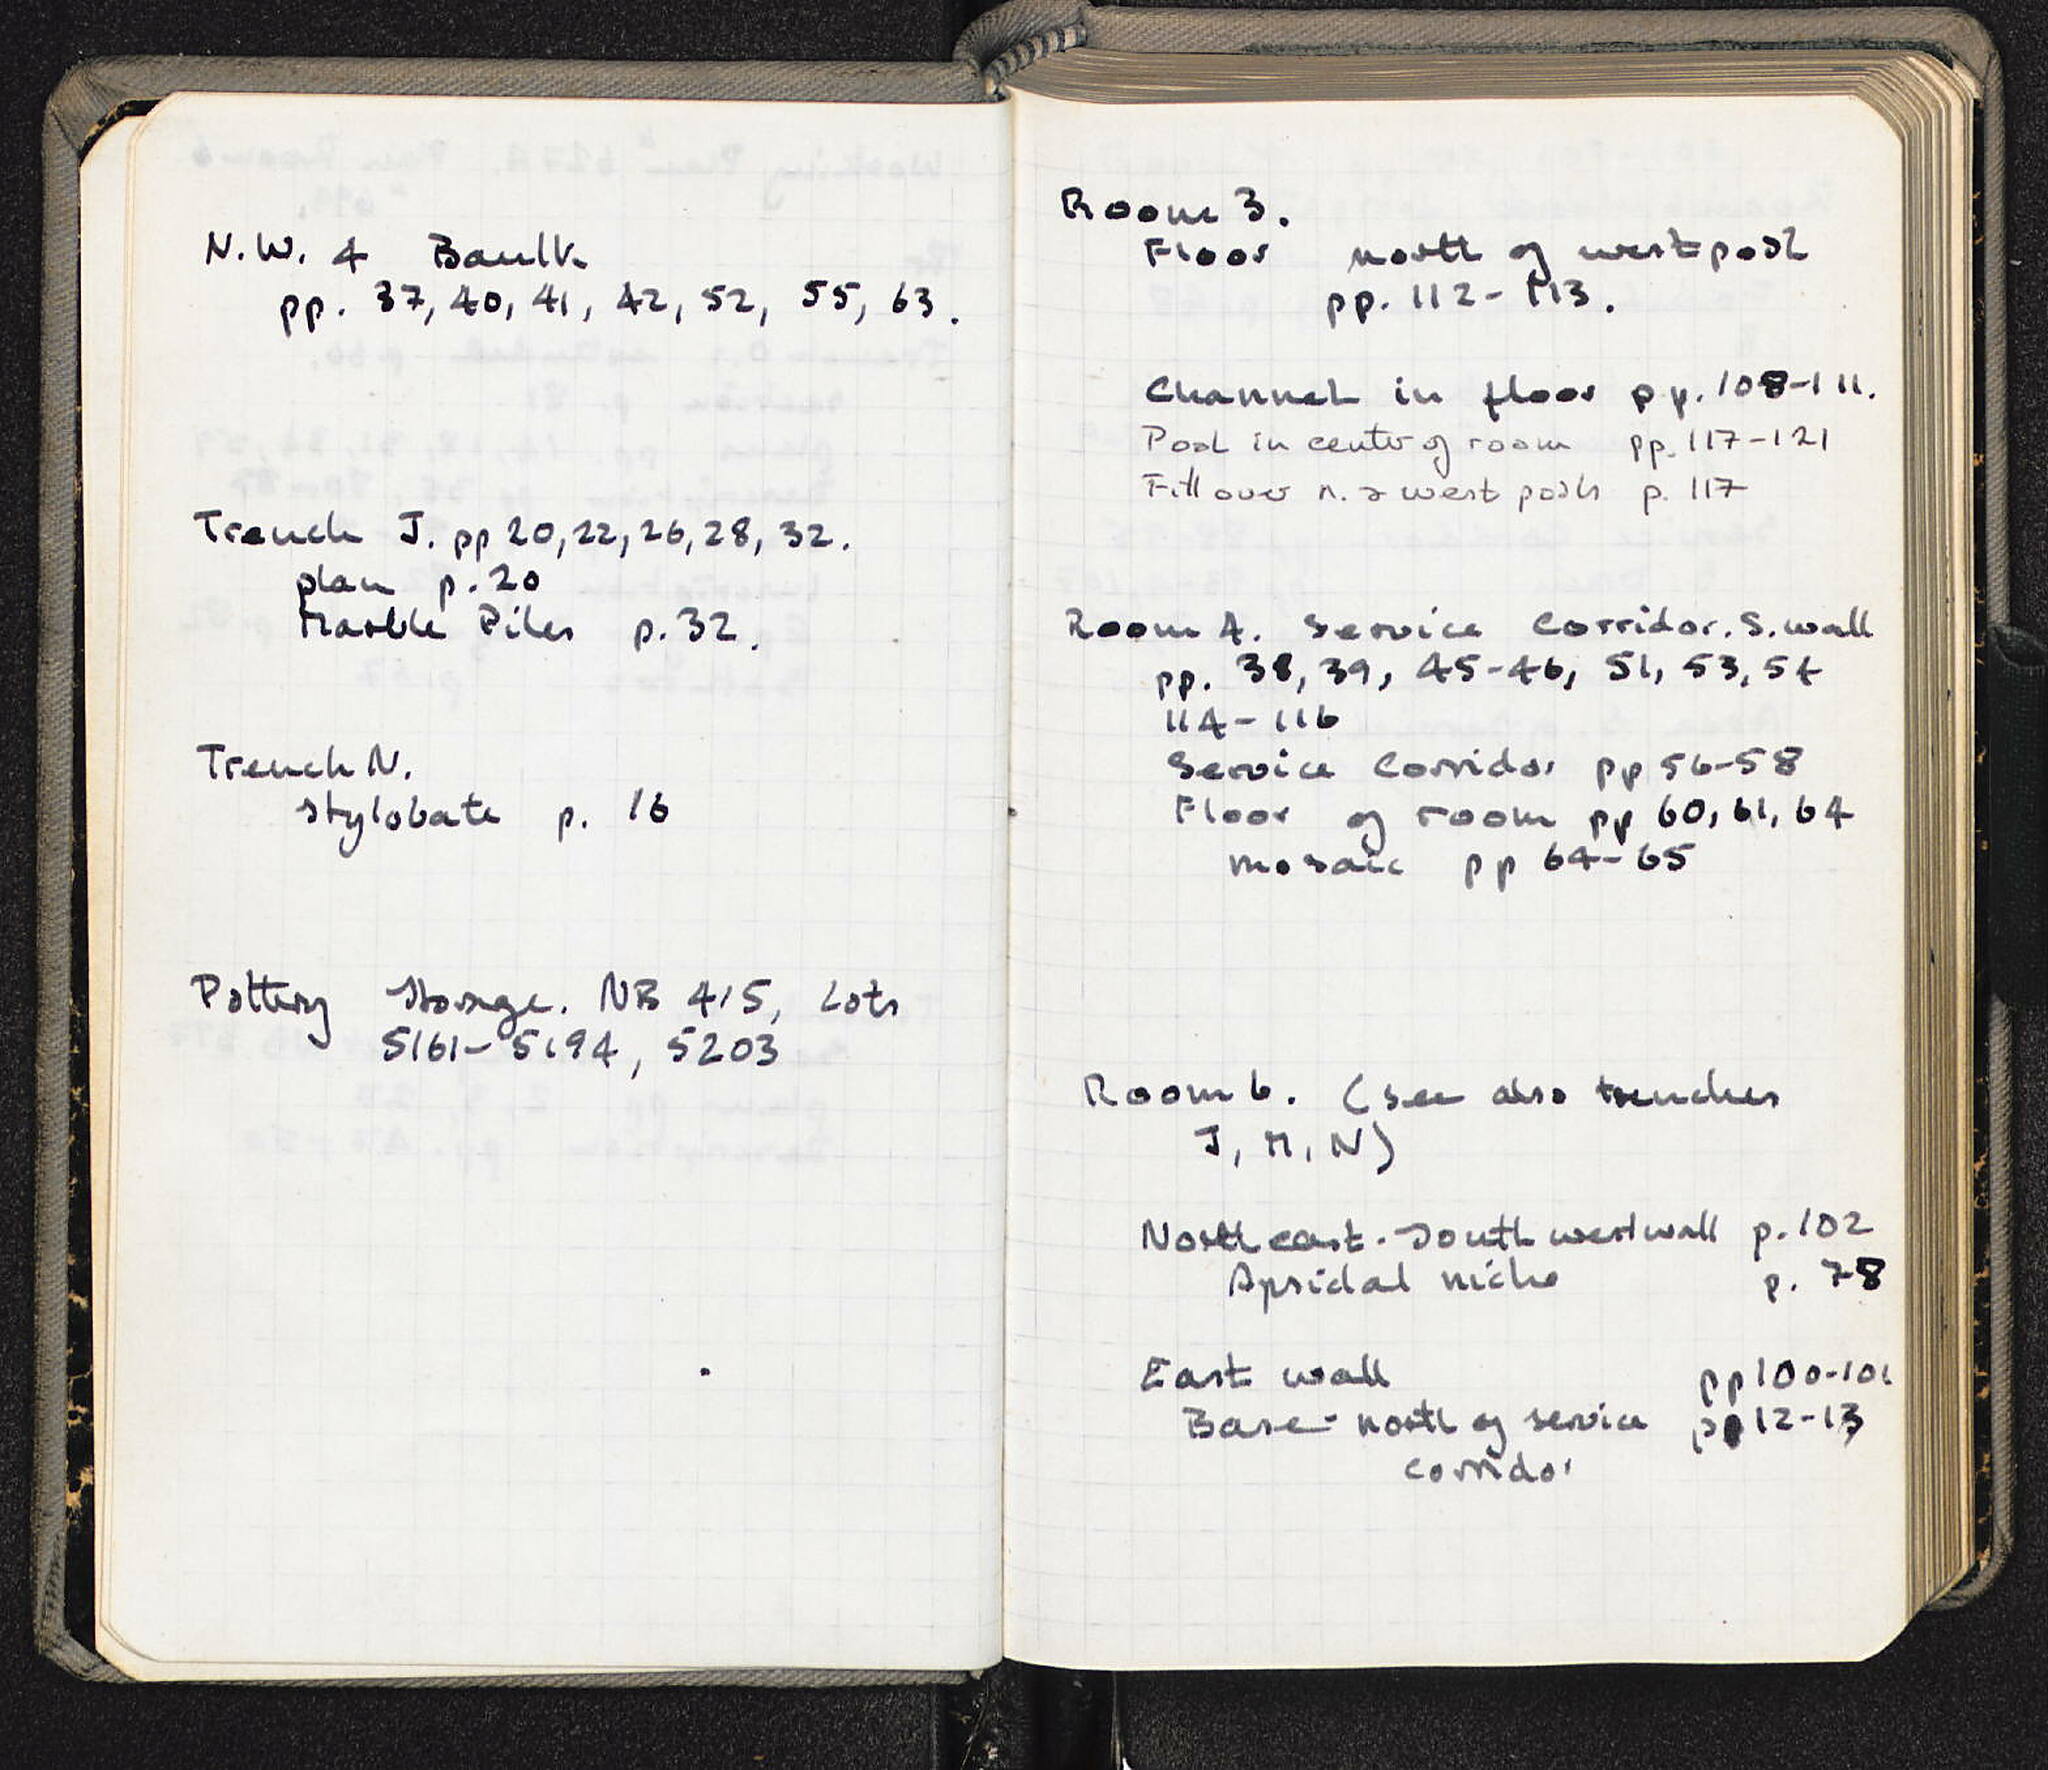 N.W. 4 Baulk
pp. 37, 40, 41, 42, 52, 55, 63.
Trench J. pp 20, 22, 26, 28, 32.
plan p. 20
Marble Piles p. 32.
Trench N.
stylobate p. 16
Pottery Storage. NB 415, Lots
5161-5194, 5203
Room 3.
Floor north of west pool
pp. 112-113.
Channel in floor pp. 108-111.
Pool in center of room pp. 117-121
Fill over n. & west pools p. 117
Room 4. Service Corridor. S. wall
pp. 38, 39, 45-46, 51, 53, 54
114-116
Service Corridor pp 56-58
Floor of room pp 60, 61, 64
mosaic pp 64-65
Room 6. (see also trenches
J, M, N)
Northeast-Southwest wall p. 102
Apsidal niche p. 78
East wall pp 100-101
Base - north of service pp 12-13
corridor